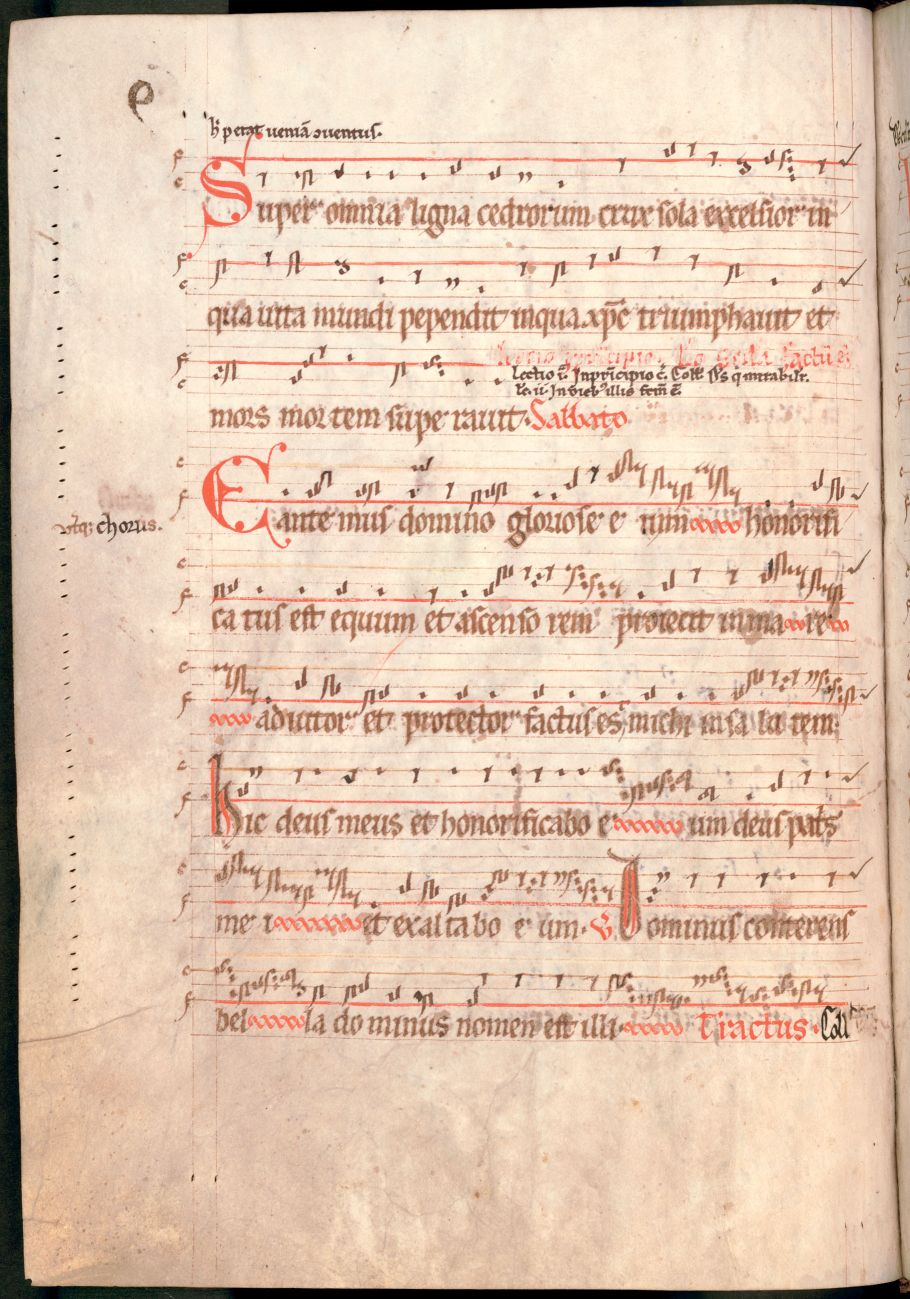 e
h petat ueniā ɔuentus.
Super omnia ligna cedrorum crux sola excelsior in
qua uita mundi pependit inqua xp̄c triumphauit et
Lectio i. Inprīcipio ē. Coll. Ds q mirabilr.
Indieb illis
mors mortem supe rauit. Sabbato
Cante mus domino gloriose e nim honorifi
chorus.
ca tus est equum et ascenso rem proiecit inma re
adiutor et protector factus es michi insa lu tem.
hic deus meus et honorificabo e um deus patris
me i et exalta bo e um. V Dominus conterens
bel la do minus nomen est illi. Tractus. Coll